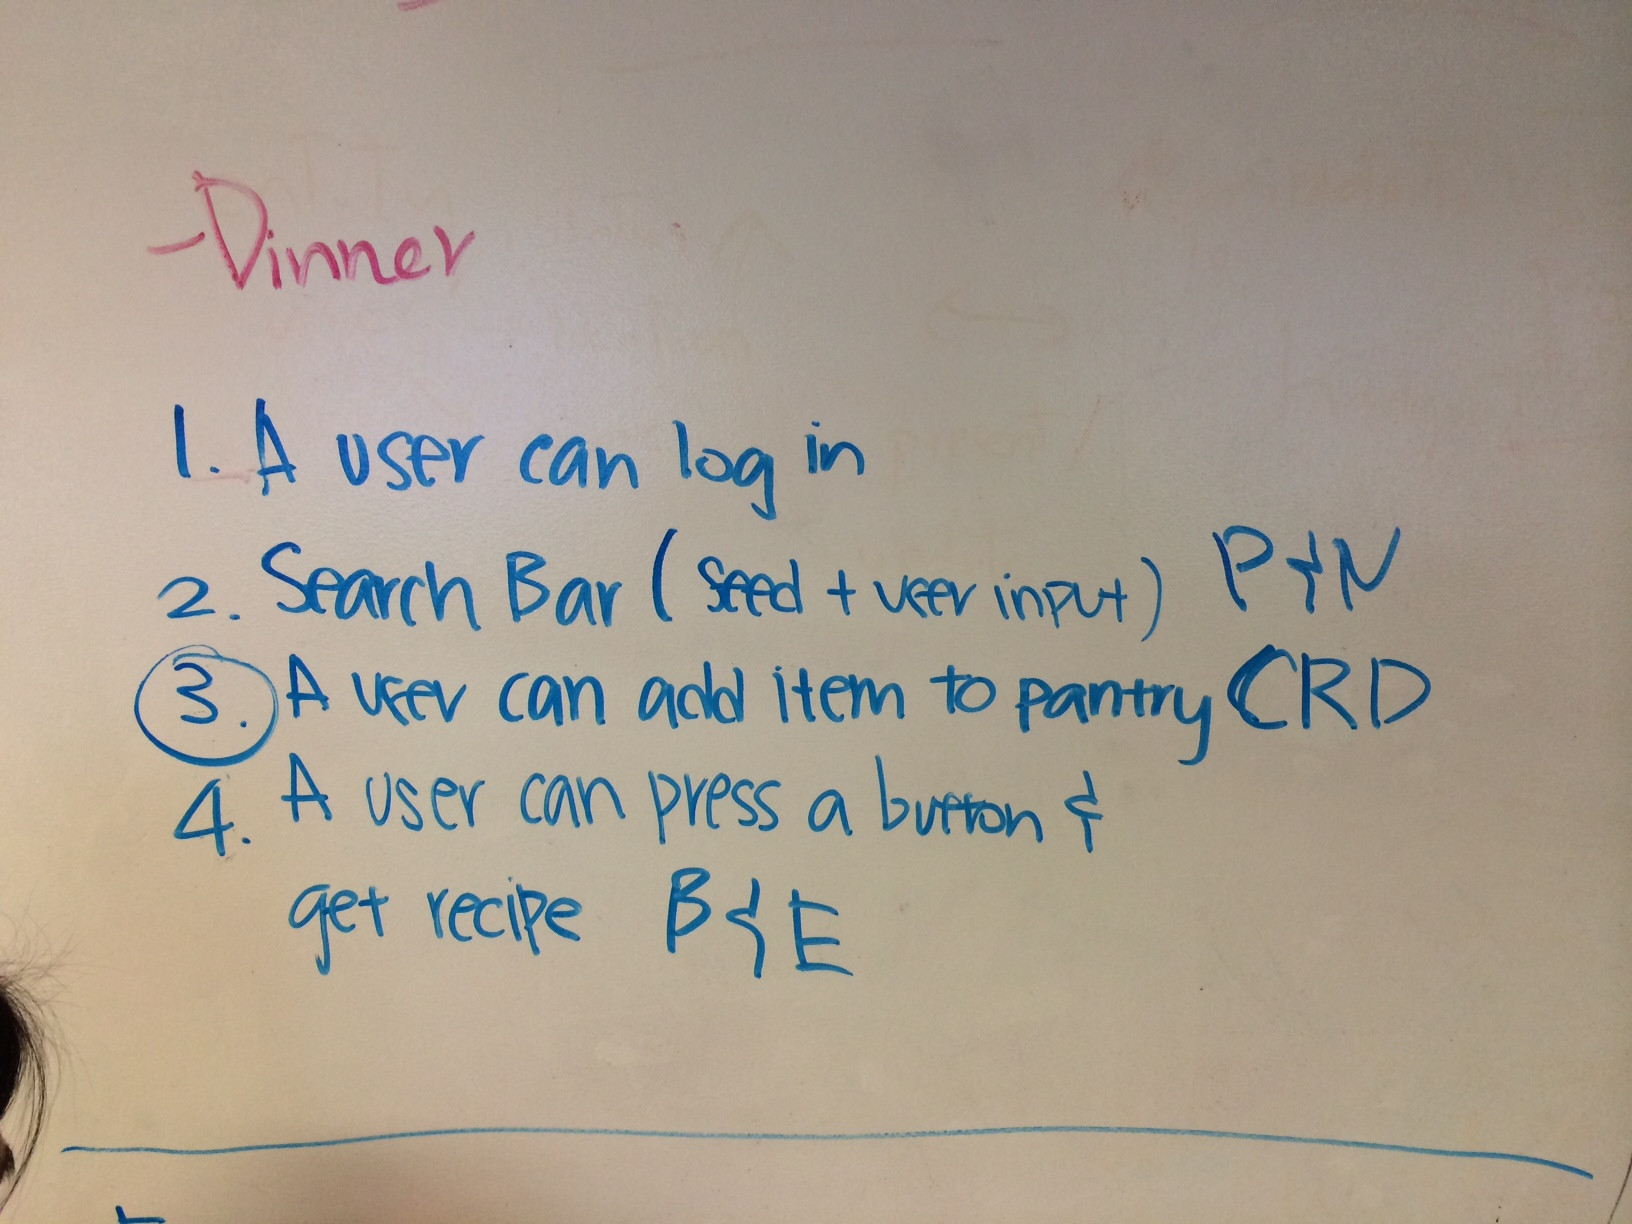 -Dinner
1. A user can log in
2. Search Bar (seed + user input) P & N
3. A user can add item to pantry CRD
4. A user can press a button &
get recipe B & E